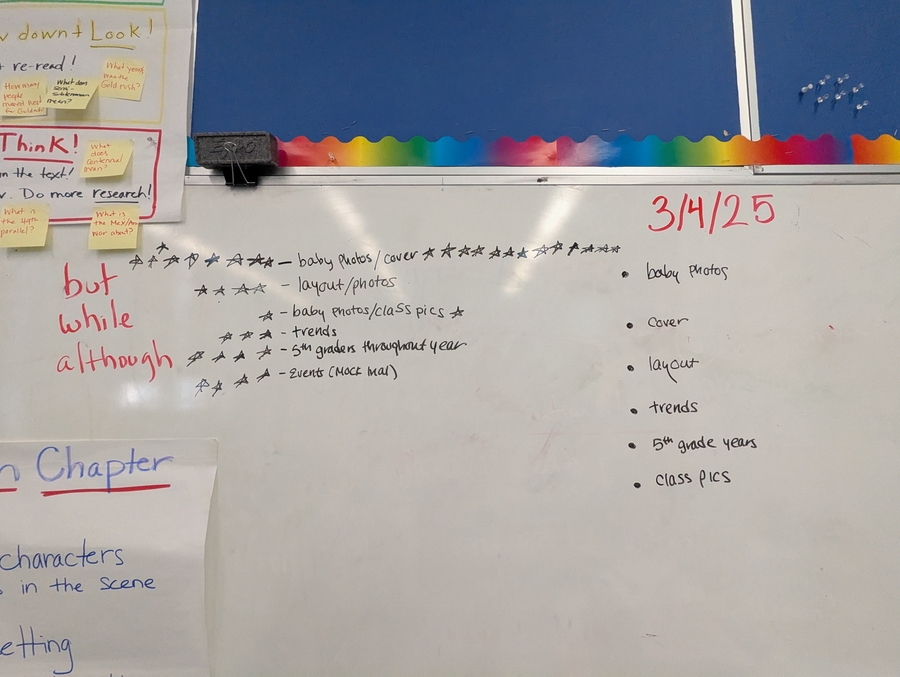 down + Look!
re-read!
How many
people
moved
What does
mean?
What year
was the
Gold rush?
Think!
in the text!
What
does
Centennial
mean?
Do more research!
What is
the 49th
parallel?
What is
the Mex/Am
war about?
3/4/25
but
while
although
- baby photos/cover
- layout/photos
- baby photos/class pics
- trends
- 5th graders throughout year
- Events (Mock trial)
• baby photos
• cover
• layout
• trends
• 5th grade years
• class pics
Chapter
characters
in the scene
etting